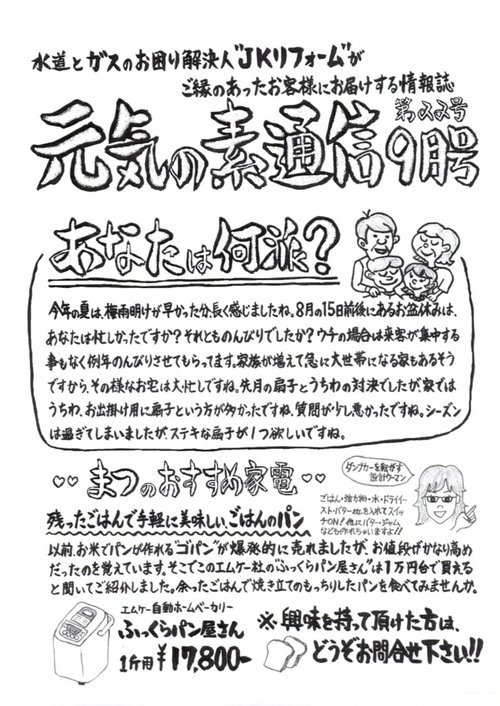 水道とガスのお困り解決人"JKリフォーム"が
ご縁のあったお客様にお届けする情報誌
元気の素通信 第22号 9月号
あなたは何派?
今年の夏は、梅雨明けが早かった分、長く感じましたね。8月の15日前後にあるお盆休みは、
あなたは忙しかったですか?それとものんびりでしたか?ウチの場合は来客が集中する
事もなく例年のんびりさせてもらってます。家族が増えて急に大世帯になる家もあるそう
ですから、その様なお宅は大忙しですね。先月の扇子とうちわの対決でしたが、家では
うちわ、お出掛け用に扇子という方が多かったですね。質問が少し悪かったですね。シーズン
は過ぎてしまいましたが、ステキな扇子が1つ欲しいですね。
♡♡ まつのおすすめ家電 ♡♡
ダンプカーを転がす
設計ウーマン
残ったごはんで手軽に美味しい、ごはんのパン
ごはん・強力粉・水・ドライイー
スト・バターetcを入れてスイッ
チON!他にバター・ジャム
なども作れちゃいますよ!!
以前、お米でパンが作れる"ゴパン"が爆発的に売れましたが、お値段がかなり高め
だったのを覚えています。そこでこのエムケー社の"ふっくらパン屋さん"は1万円台で買える
と聞いてご紹介しました。余ったごはんで焼き立てのもっちりしたパンを食べてみませんか。
エムケー自動ホームベーカリー
ふっくらパン屋さん
1斤用 ¥17,800-
※興味を持って頂けた方は、
どうぞお問合せ下さい!!